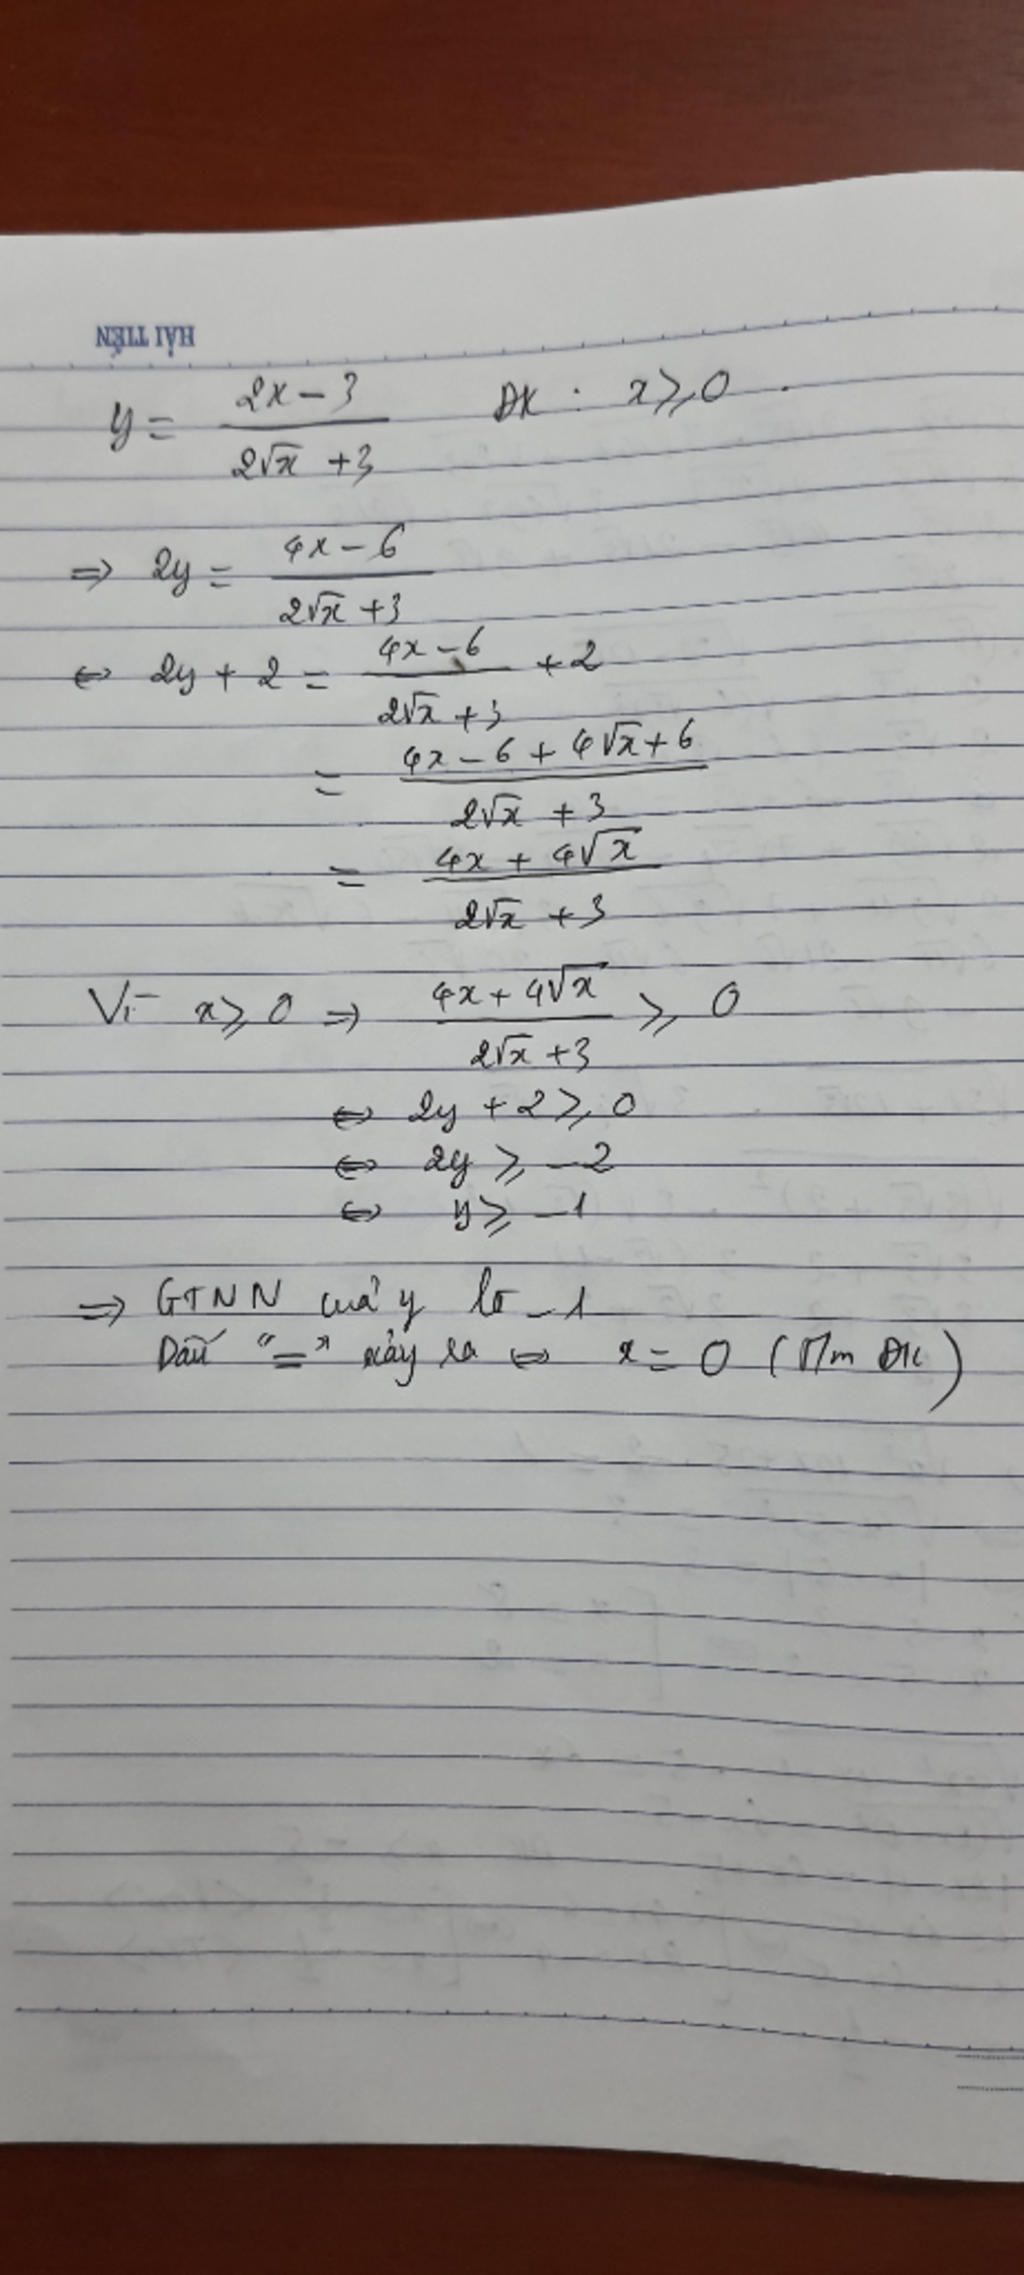 HẢI TIẾN
y = \frac{2x-3}{2\sqrt{x}+3} ĐK : x ⩾ 0 .
⇒ 2y = \frac{4x-6}{2\sqrt{x}+3}
⇔ 2y + 2 = \frac{4x-6}{2\sqrt{x}+3} + 2
= \frac{4x-6+4\sqrt{x}+6}{2\sqrt{x}+3}
= \frac{4x+4\sqrt{x}}{2\sqrt{x}+3}
Vì x ⩾ 0 ⇒ \frac{4x+4\sqrt{x}}{2\sqrt{x}+3} ⩾ 0
⇔ 2y + 2 ⩾ 0
⇔ 2y ⩾ -2
⇔ y ⩾ -1
⇒ GTNN của y là -1
Dấu "=" xảy ra ⇔ x = 0 (T/m ĐK)